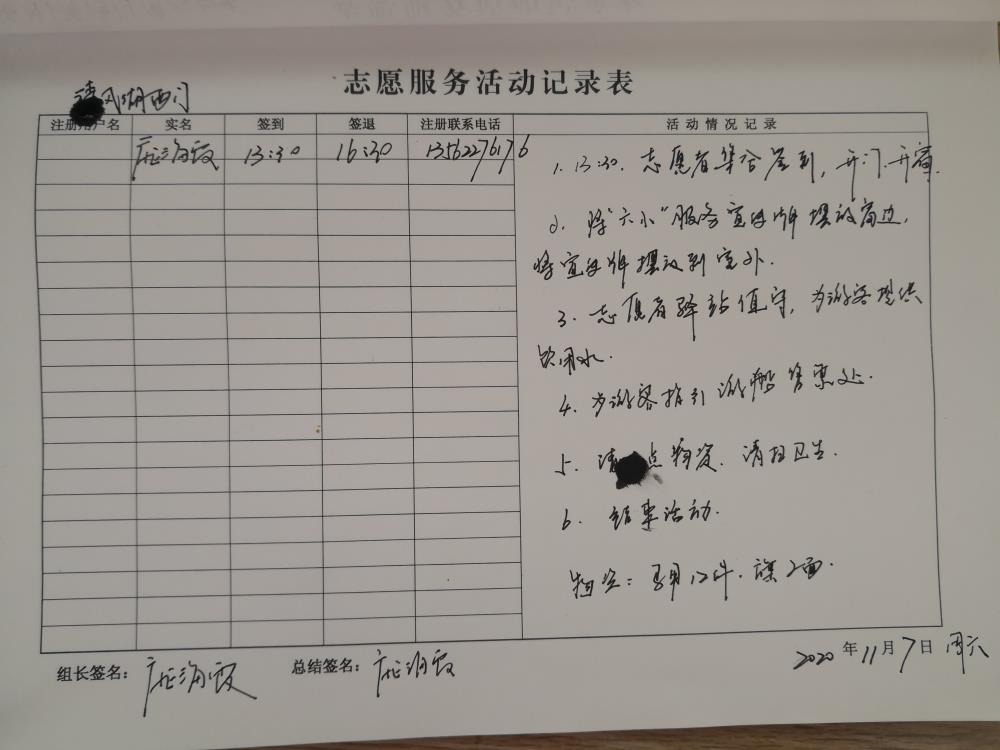 志愿服务活动记录表
风湖西门
注册用户名 实名 签到 签退 注册联系电话 活动情况记录
庞海霞 13:30 16:30 13562276176
1. 13:30. 志愿者集合签到, 开门.开窗.
2. 将"六小"服务宣传牌摆放窗边,
将宣传牌摆放到室外.
3. 志愿者驿站值守, 为游客提供
饮用水.
4. 为游客指引游船售票处.
5. 清点物资. 清扫卫生.
6. 结束活动.
物资: 12件. 旗2面.
组长签名: 庞海霞 总结签名: 庞海霞 2020年11月7日 周六